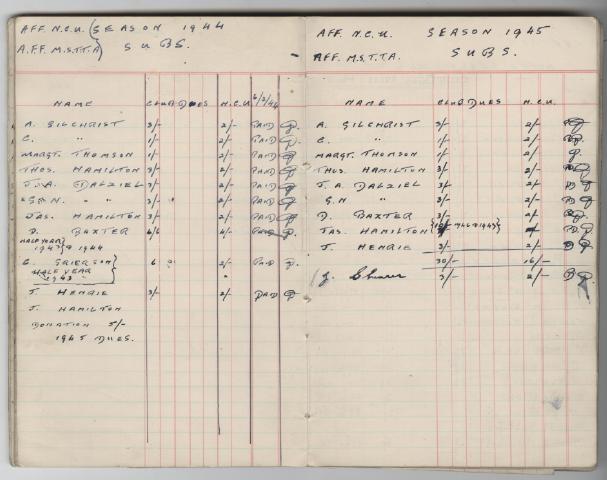 AFF. N.C.U. SEASON 1944
AFF. M.S.T.T.A SUBS.
NAME CLUB DUES N.C.U 6/3/44
A. GILCHRIST 3/- 2/- PAID
C. " 1/- 2/- PAID
MARGT. THOMSON 1/- 2/- PAID
THOS. HAMILTON 3/- 2/- PAID
J.A. DALZIEL 3/- 2/- PAID
G.N. " 3/- 2/- PAID
JAS. HAMILTON 3/- 2/- PAID
D. BAXTER 4/6 4/- PAID
HALF YEAR
1943 & 1944
C. GRIERSON 6 2/- PAID
HALF YEAR "
1943
J. HENRIE 3/- 2/- PAID
J. HAMILTON
DONATION 5/-
1945 DUES.
AFF. N.C.U. SEASON 1945
AFF. M.S.T.T.A. SUBS.
NAME CLUB DUES N.C.U.
A. GILCHRIST 3/- 2/-
C. " 1/- 2/-
MARGT. THOMSON 1/- 2/-
THOS. HAMILTON 3/- 2/-
J.A. DALZIEL 3/- 2/-
G.N " 3/- 2/-
D. BAXTER 3/- 2/-
JAS. HAMILTON
J. HENRIE 3/- 2/-
30/- 16/-
J. 3/- 2/-